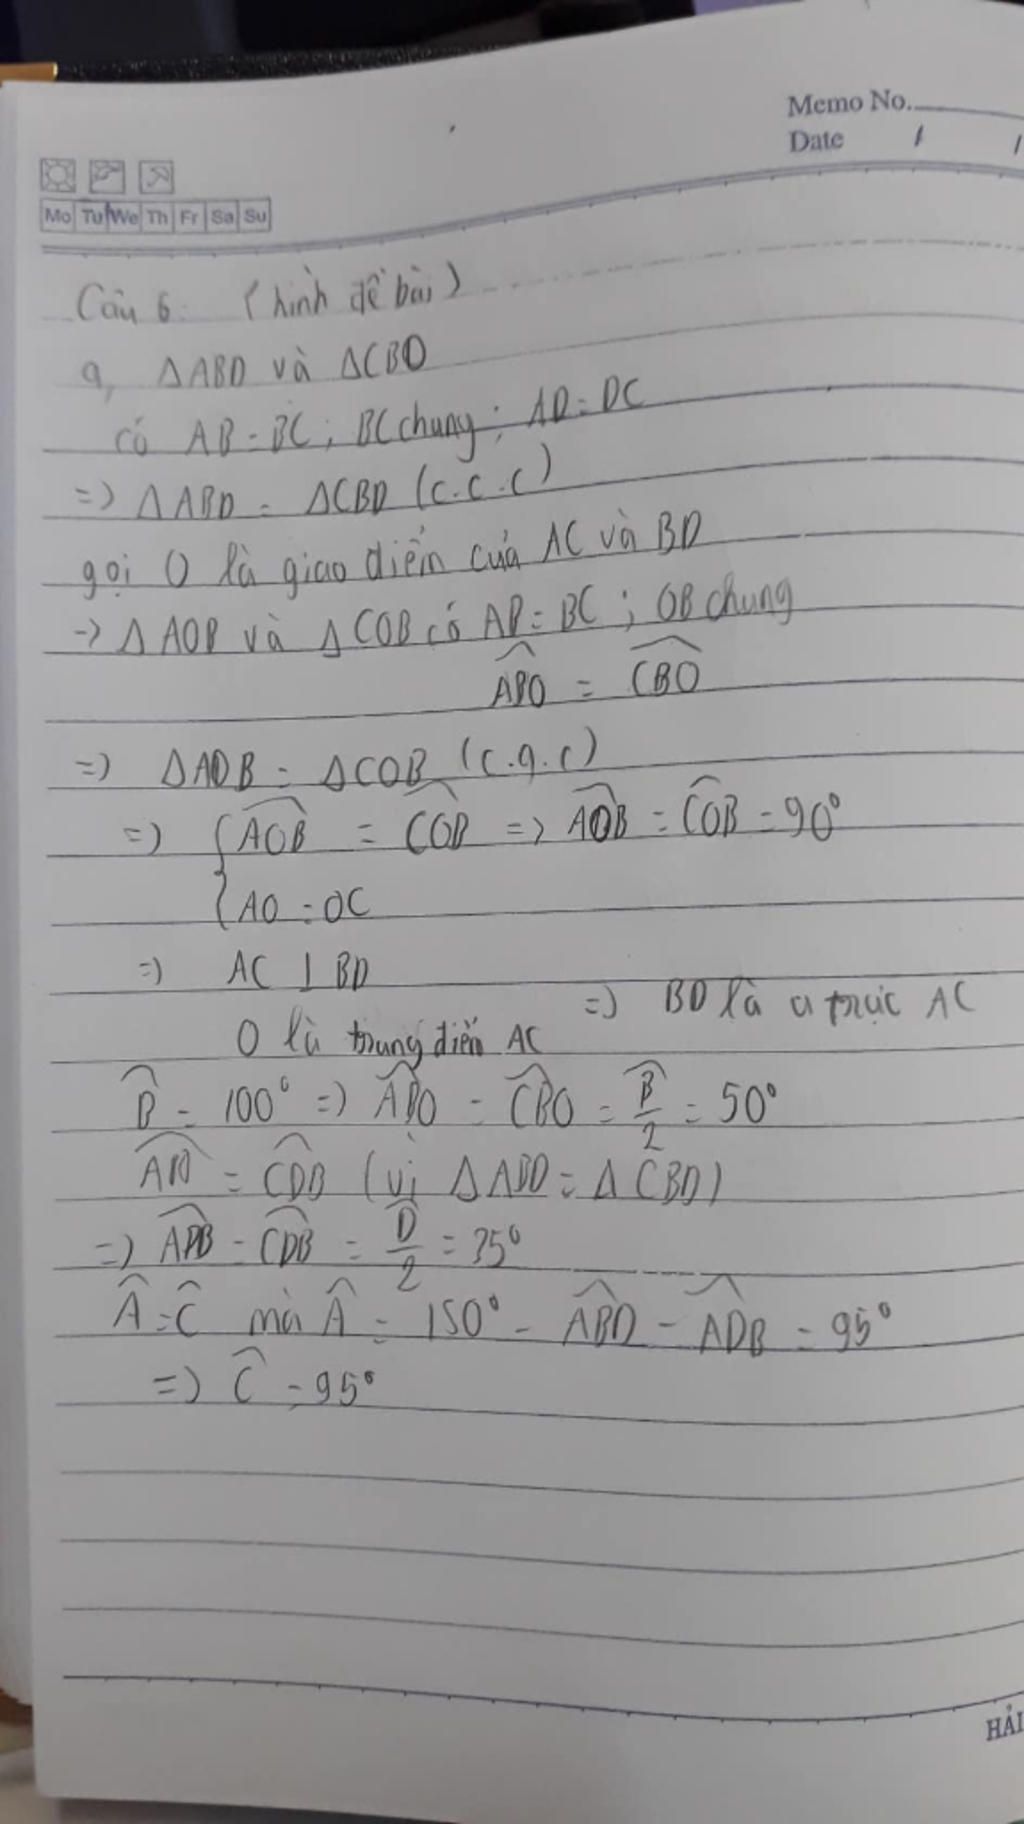 Memo No.
Date / /
Mo Tu We Th Fr Sa Su
Câu 6: (hình đề bài)
a, ΔABD và ΔCBD
có AB = BC; BC chung; AD = DC
=> ΔABD = ΔCBD (c.c.c)
gọi O là giao điểm của AC và BD
-> ΔAOB và ΔCOB có AB = BC; OB chung
ABO^ = CBO^
=> ΔAOB = ΔCOB (c.g.c)
=> { AOB^ = COB^ => AOB^ = COB^ = 90°
{ AO = OC
=> AC ⊥ BD
O là trung điểm AC => BD là trực AC
B^ = 100° => ABO^ = CBO^ = B^/2 = 50°
= CDB^ (vì ΔABD = ΔCBD)
=> ADB^ = CDB^ = D^/2 = 35°
A^ = C^ mà A^ = 180° - ABD^ - ADB^ = 95°
=> C^ = 95°
HẢI